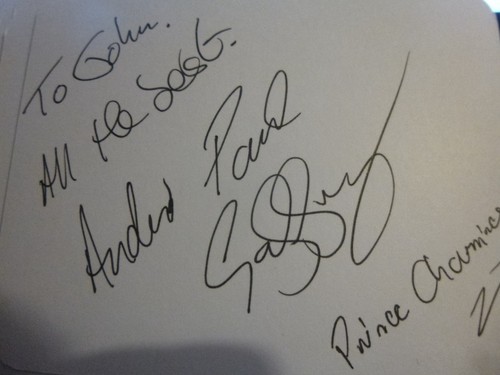 To John.
All the best.
Andrew Paul
Prince Charming